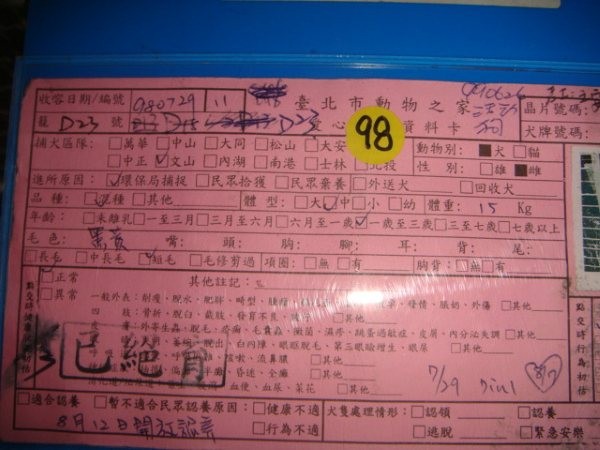 收容日期/編號 980729 11 臺北市動物之家 晶片號碼:
籠 D23 號 D23 愛心 98 資料卡 犬牌號碼:
捕犬區隊: □萬華 □中山 □大同 □松山 □大安 動物別: ■犬 □貓
□中正 ☑文山 □內湖 □南港 □士林 □北投 性 別: □雄 ■雌
進所原因: ☑環保局捕捉 □民眾拾獲 □民眾棄養 □外送犬 □回收犬
品種: ☑混種 □其他 體型: □大 ☑中 □小 □幼 體重: 15 Kg
年齡: □未離乳 □一至三月 □三至六月 □六月至一歲 ☑一歲至三歲 □三至七歲 □七歲以上
毛色: 黑黃 嘴: 頭: 胸: 腳: 耳: 背: 尾:
□長毛 □中長毛 ☑短毛 □毛修剪過 項圈: □無 □有 胸背: □無 □有
☑正常 其他註記:
□異常 一般外表: 削瘦、脫水、肥胖、畸型、腫瘤 發情、脹奶、外傷 □其他
四 肢: 骨折、脫臼、截肢、發育不良
外寄生蟲、脫毛、疥癬、毛囊蟲、黴菌、濕疹、跳蚤過敏症、皮屑、內分泌失調 □其他
脫出、白內障、眼眶脫毛、第三眼瞼增生、眼屎 □其他
咳嗽、流鼻膿 □其他
昏迷、全癱 □其他
血便、血尿、菜花 □其他
點交時健康初估
點交時行為初估
已絕育
7/29
8/7
□適合認養 □暫不適合民眾認養原因: □健康不適 犬隻處理情形: □認領 □認養
8月12日開放認養 □行為不適 □逃脫 □緊急安樂